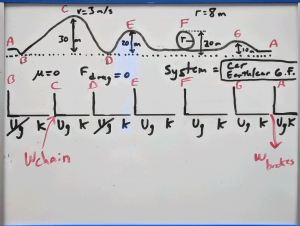 C v=3 m/s E F r=8m
A 30 m 20m r 20m G 10m A
B D
B μ=0 Fdrag=0 System = Car Earth/car G.F.
C D E F G A
Ug K Ug K Ug K Ug K Ug K Ug K Ug K
Wchain Wbrakes